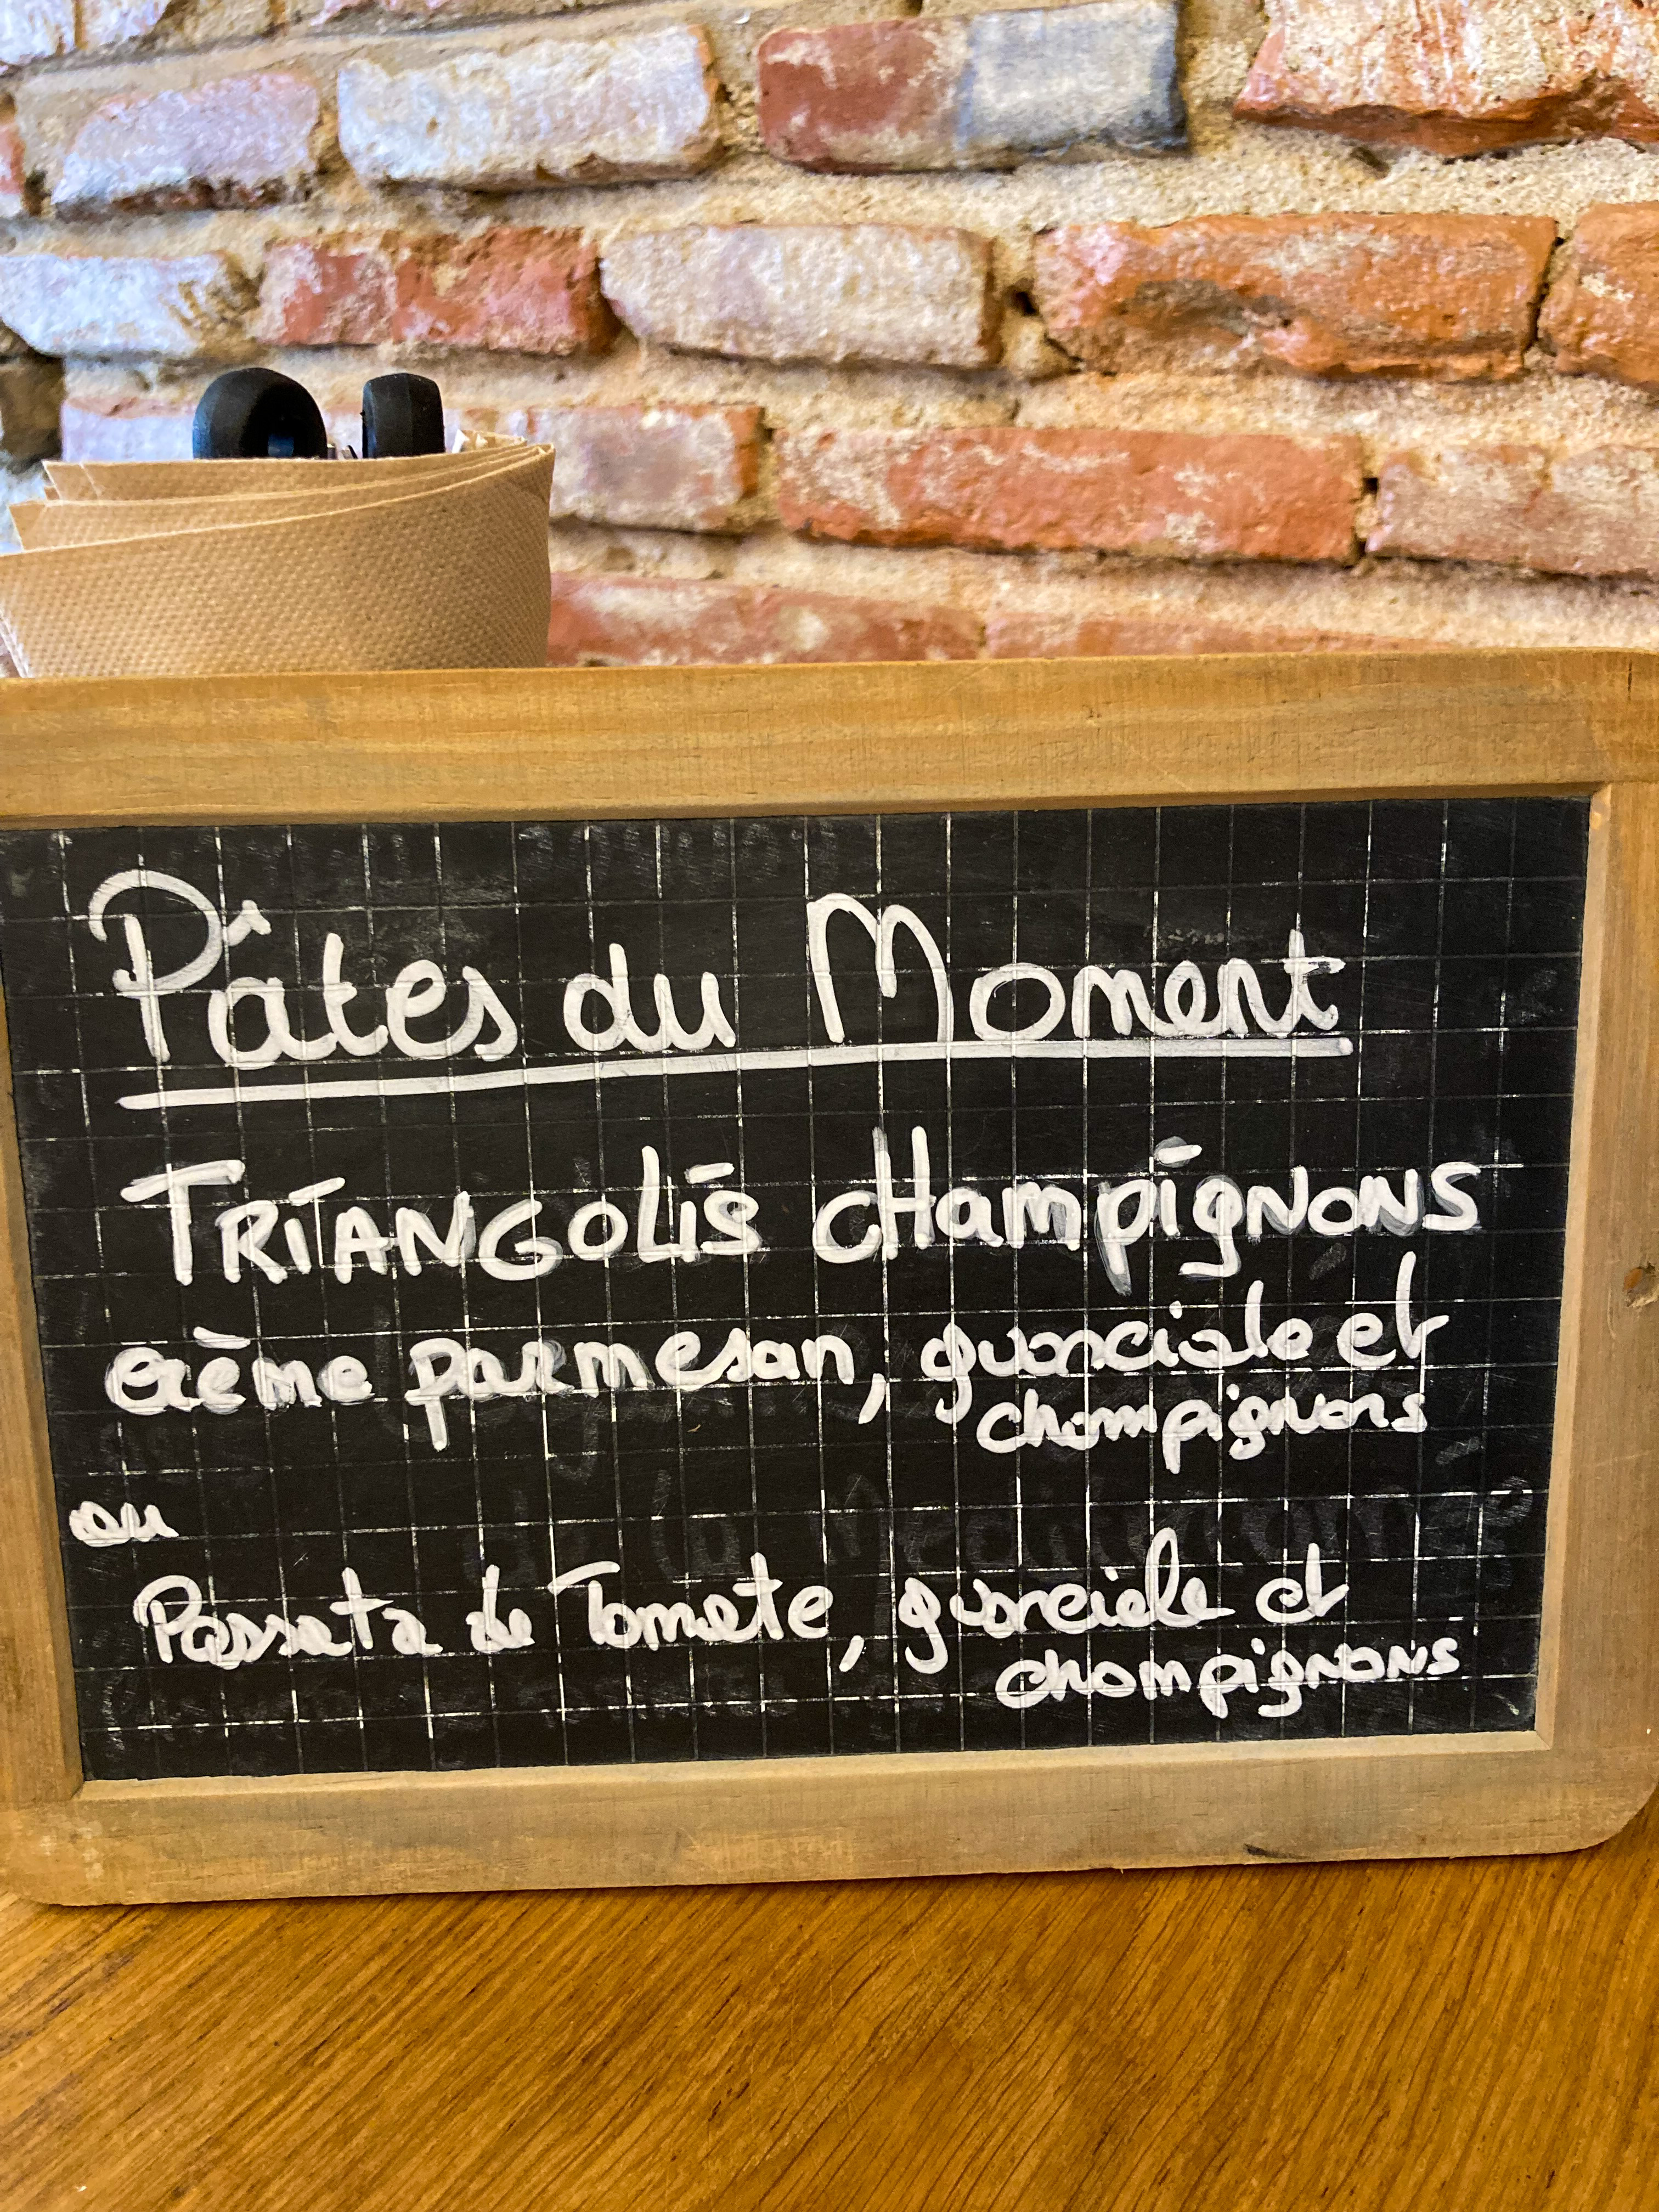 Pâtes du Moment
TRIANGOLIS CHampignons
crème parmesan, guanciale et
champignons
ou
Passata de Tomate, guanciale et
champignons